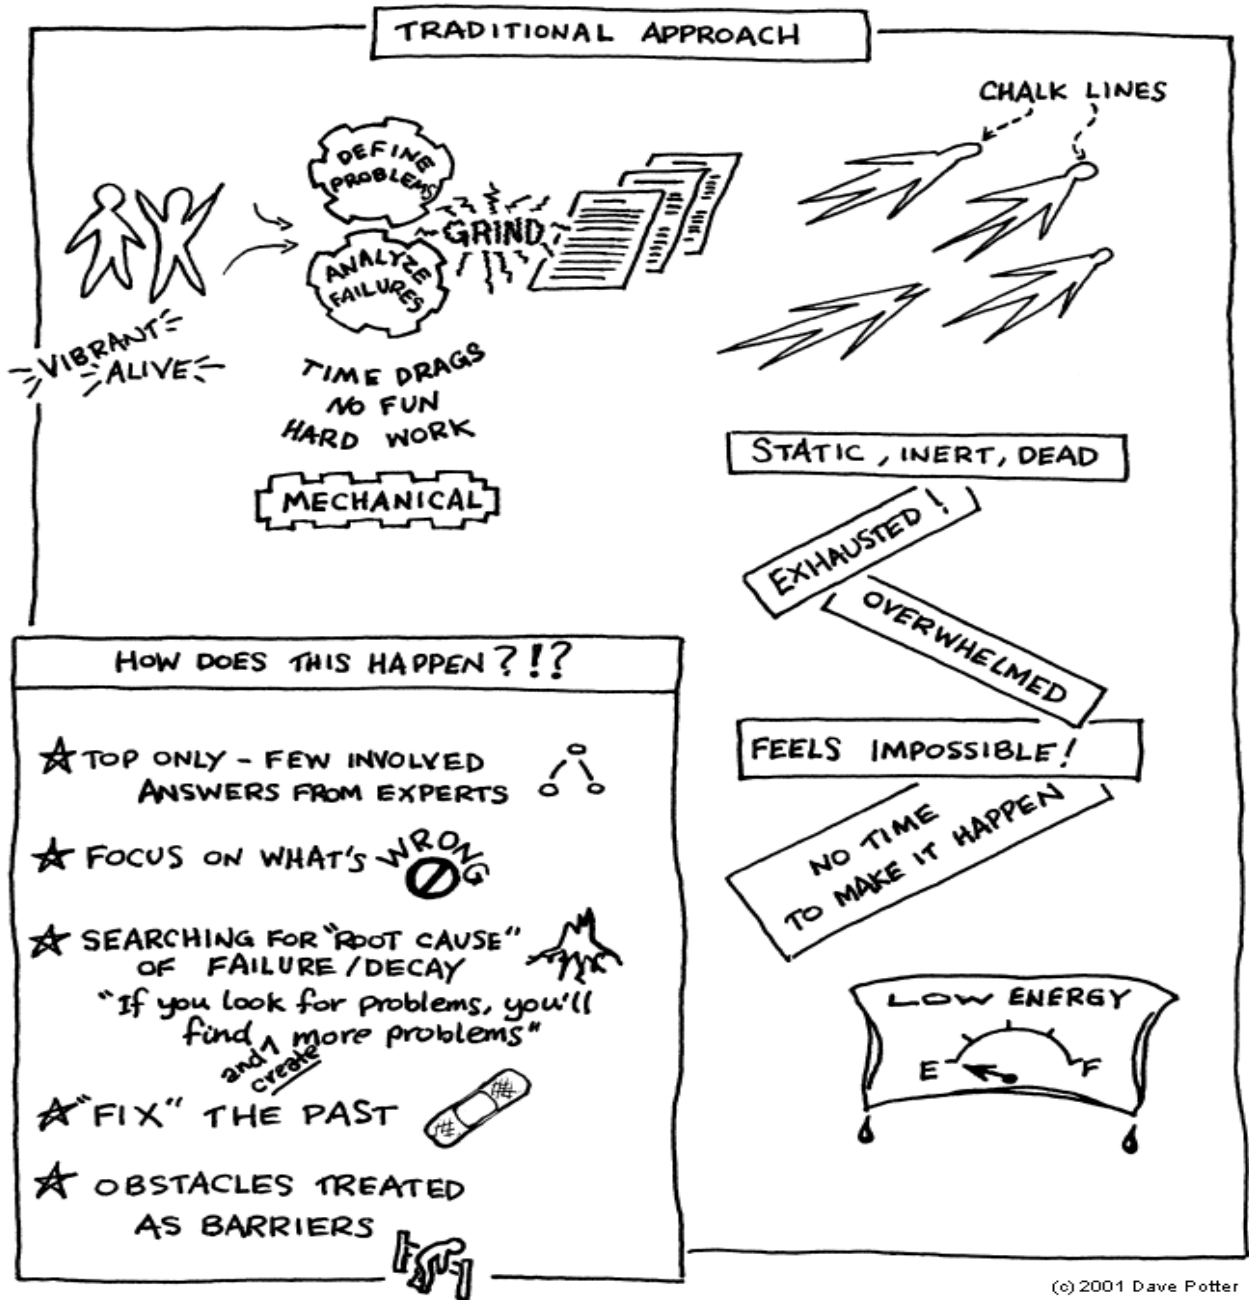 TRADITIONAL APPROACH
CHALK LINES
DEFINE
PROBLEMS
GRIND
ANALYZE
FAILURES
VIBRANT
ALIVE
TIME DRAGS
NO FUN
HARD WORK
MECHANICAL
STATIC, INERT, DEAD
EXHAUSTED!
OVERWHELMED
FEELS IMPOSSIBLE!
NO TIME
TO MAKE IT HAPPEN
LOW ENERGY
E F
HOW DOES THIS HAPPEN?!?
TOP ONLY - FEW INVOLVED
ANSWERS FROM EXPERTS
FOCUS ON WHAT'S WRONG
SEARCHING FOR "ROOT CAUSE"
OF FAILURE/DECAY
"If you look for problems, you'll
find more problems"
and
create
"FIX" THE PAST
OBSTACLES TREATED
AS BARRIERS
(c) 2001 Dave Potter